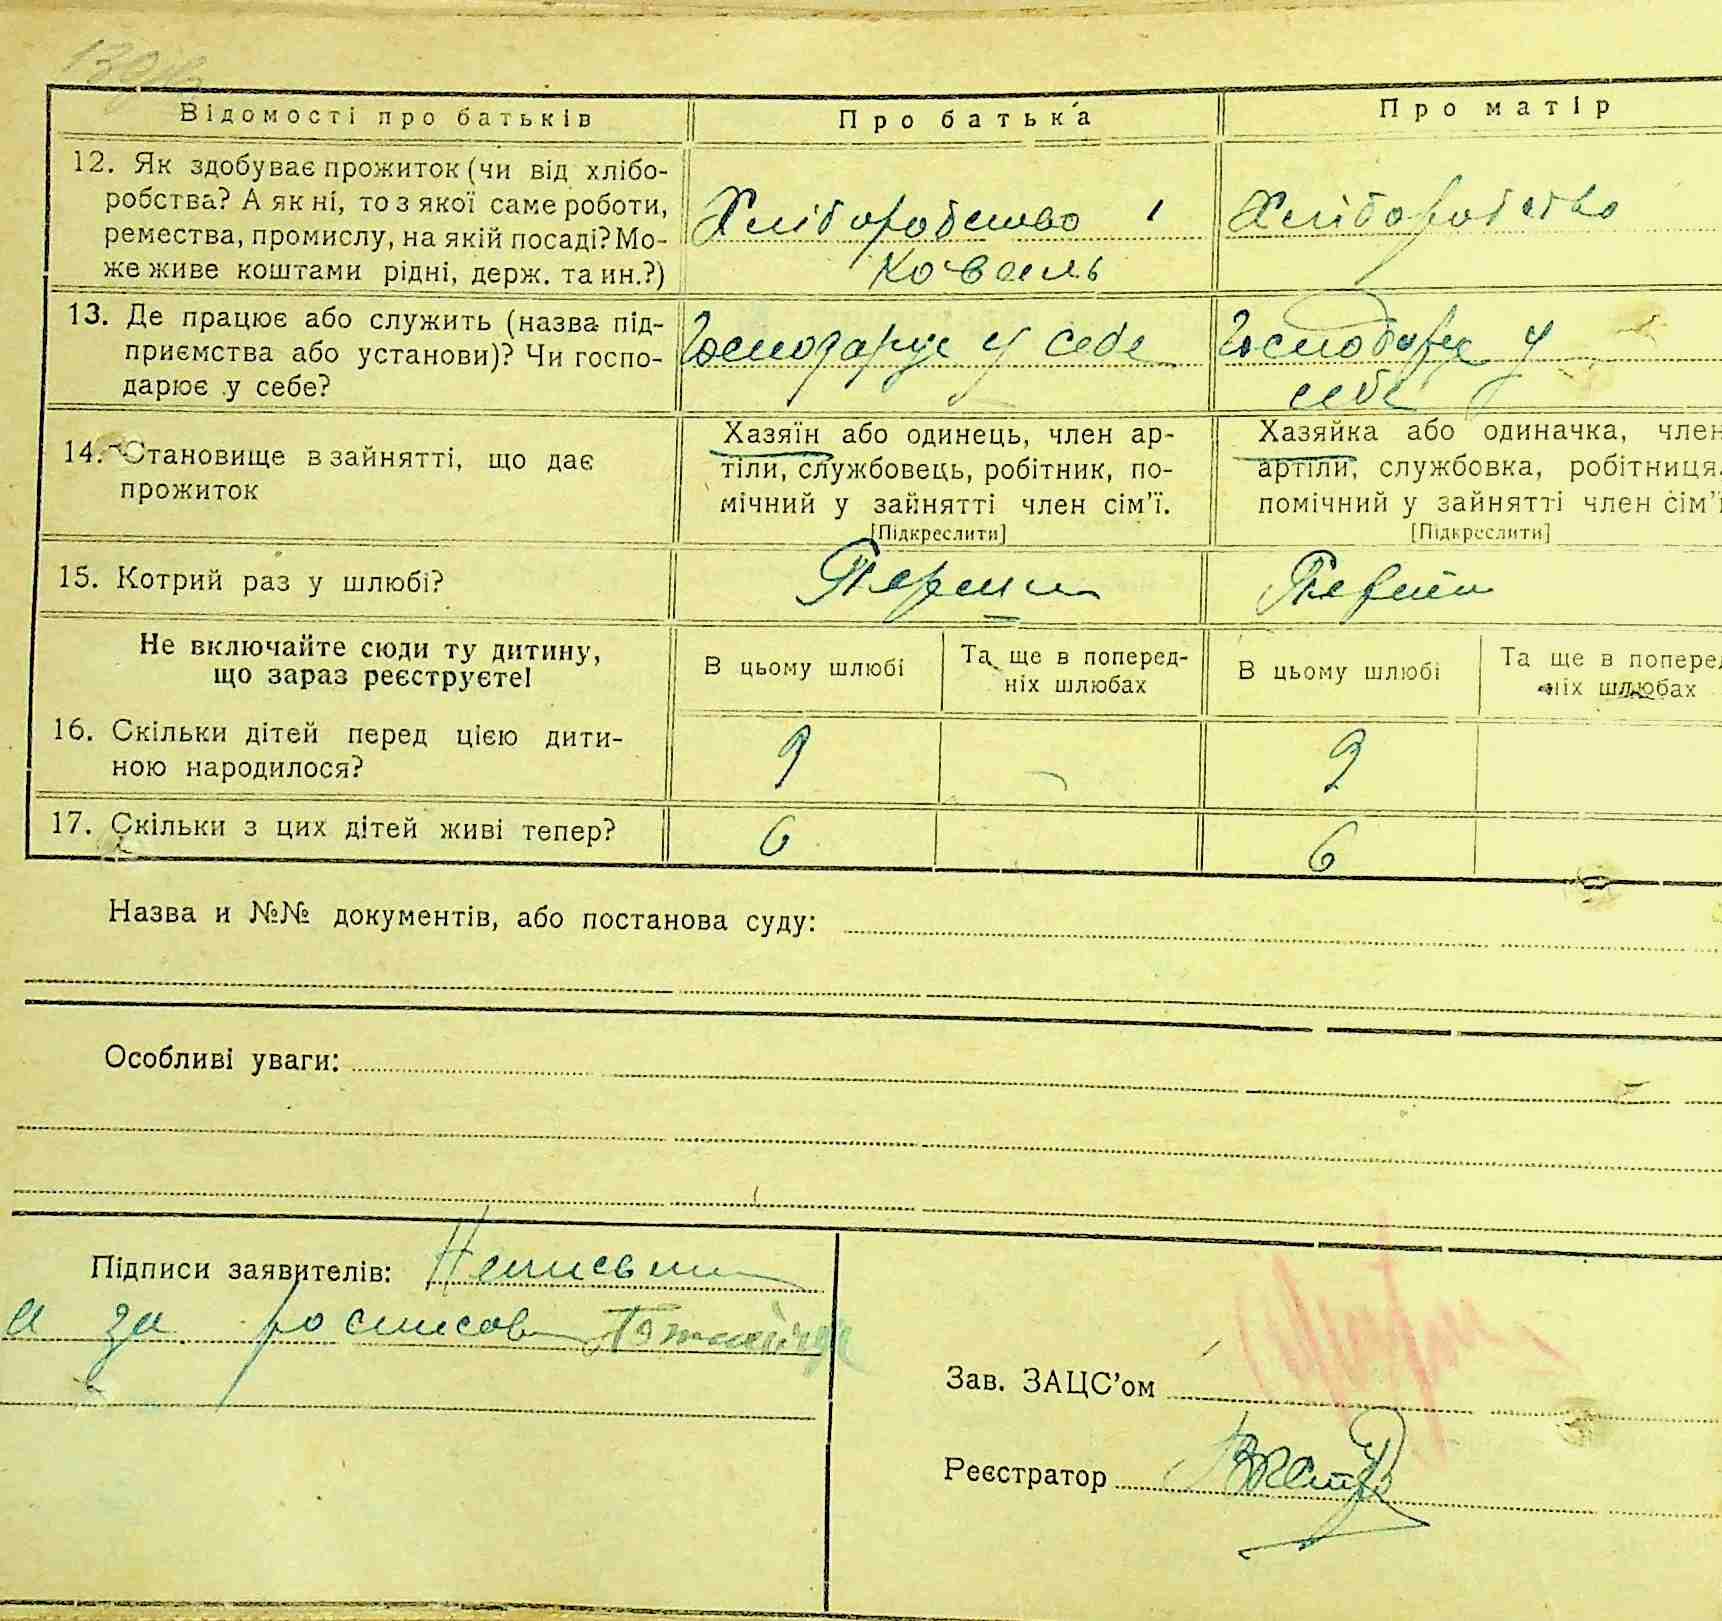 Відомості про батьків
Про батька
Про матір
12. Як здобуває прожиток (чи від хлібо-
робства? А як ні, то з якої саме роботи,
ремества, промислу, на якій посаді? Мо-
же живе коштами рідні, держ. та ин.?)
Хліборобство
коваль
Хліборобство
13. Де працює або служить (назва під-
приємства або установи)? Чи госпо-
дарює у себе?
Господарує у себе
Господарує у
себе
14. Становище в зайнятті, що дає
прожиток
Хазяїн або одинець, член ар-
тіли, службовець, робітник, по-
мічний у зайнятті член сім'ї.
[Підкреслити]
Хазяйка або одиначка, член
артіли, службовка, робітниця,
помічний у зайнятті член сім'ї
[Підкреслити]
15. Котрий раз у шлюбі?
Перший
Перший
Не включайте сюди ту дитину,
що зараз реєструєте!
В цьому шлюбі
Та ще в поперед-
ніх шлюбах
В цьому шлюбі
Та ще в поперед
ніх шлюбах
16. Скільки дітей перед цією дити-
ною народилося?
9
9
17. Скільки з цих дітей живі тепер?
6
6
Назва и №№ документів, або постанова суду:
Особливі уваги:
Підписи заявителів:
а за
Зав. ЗАЦС'ом
Реєстратор